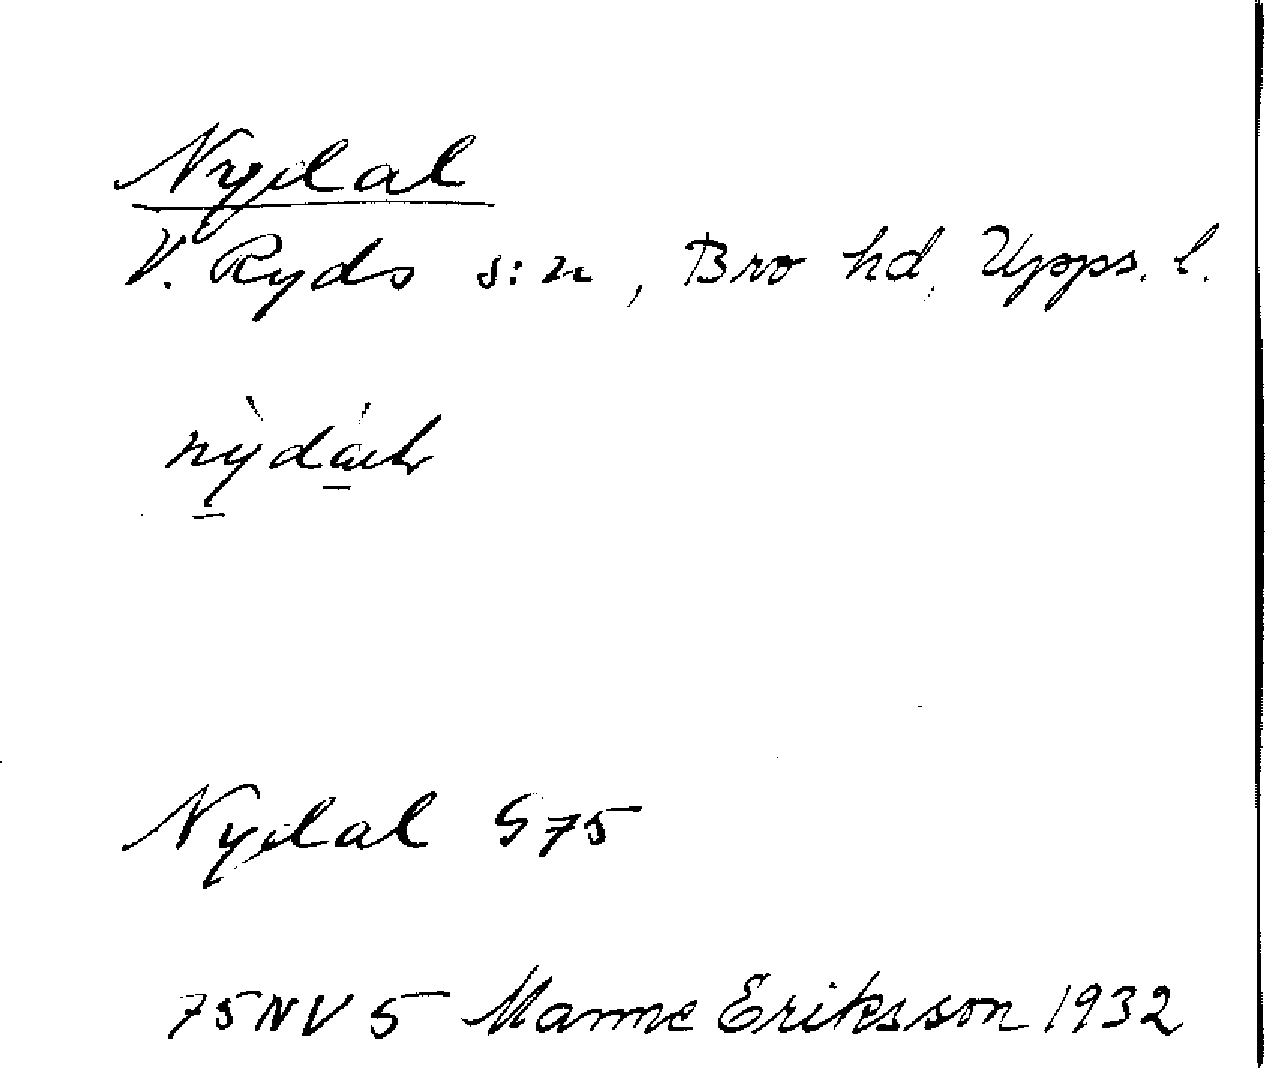 Nydal
V. Ryds s:n, Bro hd, Upps. l.
Nydal S75
75NV5 Manne Eriksson 1932